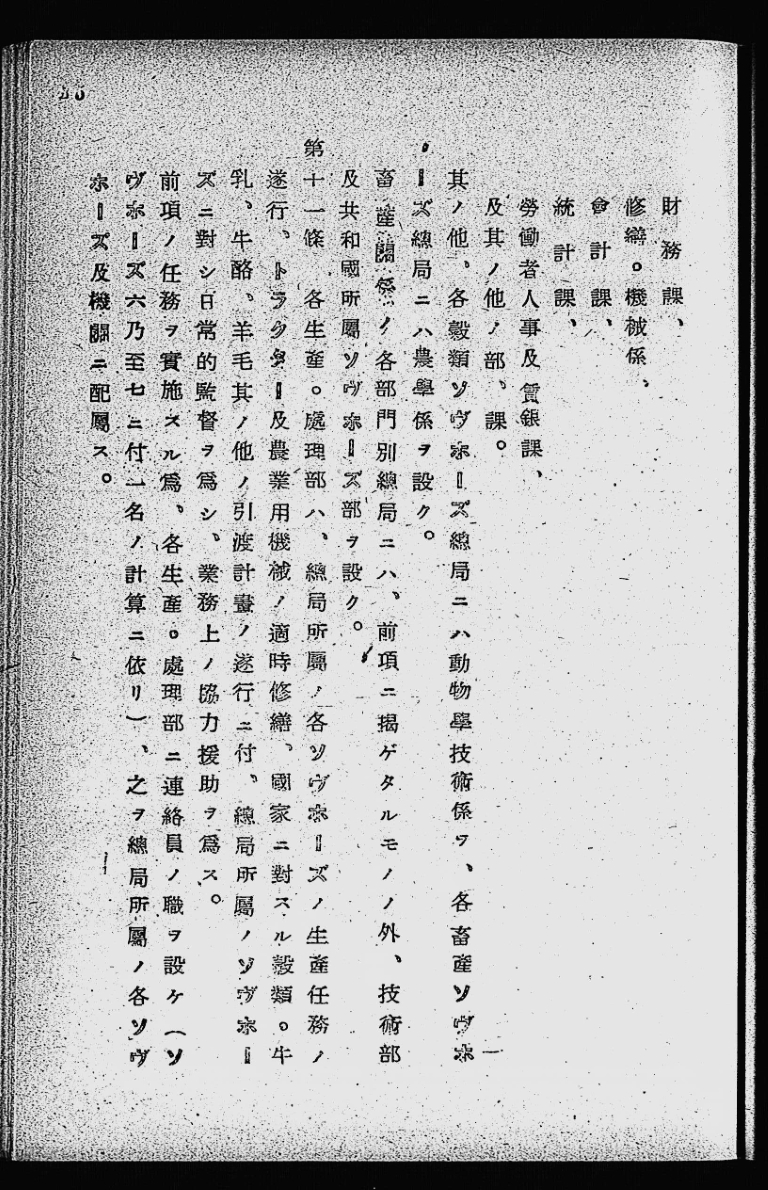 財務課、
修繕。機械係、
會計課、
統計課、
勞働者人事及賃銀課、
及其ノ他ノ部、課。
其ノ他、各穀類ソヴホーズ總局ニハ動物學技術係ヲ、各畜產ソヴホ
ーズ總局ニハ農學係ヲ設ク。
畜產關係ノ各部門別總局ニハ、前項ニ揭ゲタルモノノ外、技術部
及共和國所屬ソヴホーズ部ヲ設ク。
第十一條 各生產。處理部ハ、總局所屬ノ各ソヴホーズノ生產任務ノ
遂行、トラクター及農業用機械ノ適時修繕、國家ニ對スル穀類。牛
乳、牛酪、羊毛其ノ他ノ引渡計畫ノ遂行ニ付、總局所屬ノソヴホー
ズニ對シ日常的監督ヲ爲シ、業務上ノ協力援助ヲ爲ス。
前項ノ任務ヲ實施スル爲、各生產。處理部ニ連絡員ノ職ヲ設ケ（ソ
ヴホーズ六乃至七ニ付一名ノ計算ニ依リ）、之ヲ總局所屬ノ各ソヴ
ホーズ及機關ニ配屬ス。